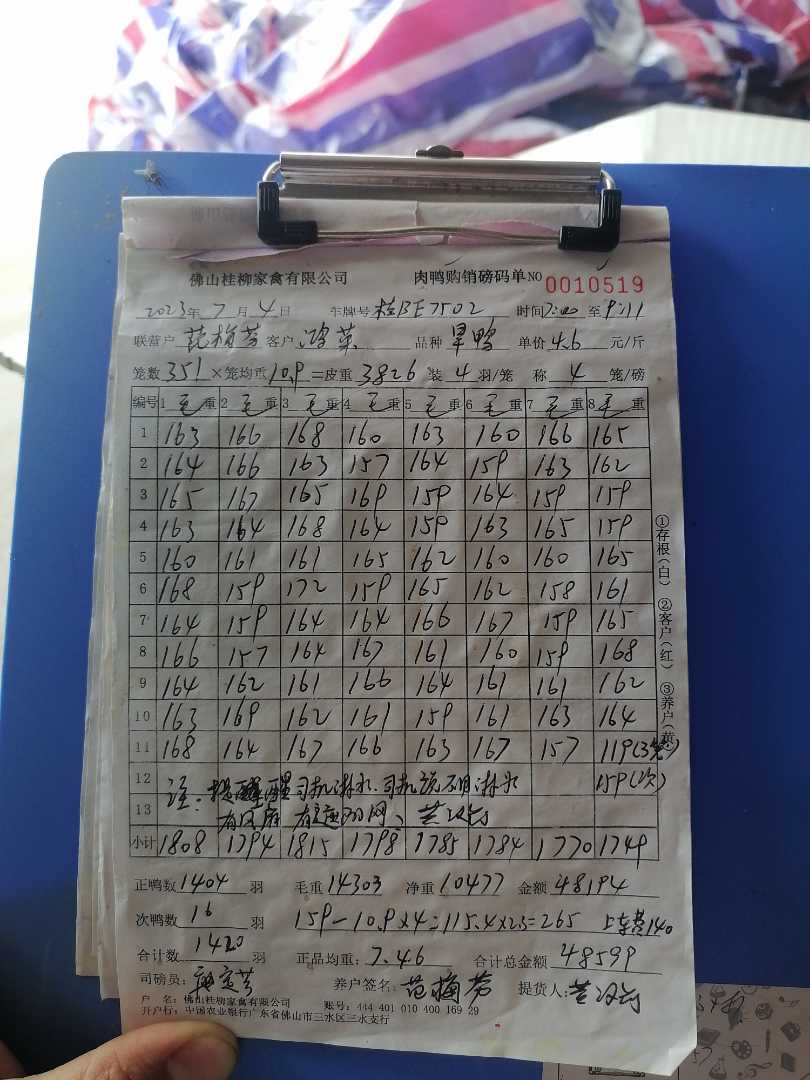 佛山桂柳家禽有限公司 肉鸭购销磅码单NO 0010519
2023年7月4日 车牌号 桂BE7502 时间7:00至9:11
联营户 范梅芳 客户 鸿菜 品种 旱鸭 单价 4.6 元/斤
笼数 351 ×笼均重 10.9 =皮重 3826 装 4 羽/笼 称 4 笼/磅
编号 1 毛重 2 毛重 3 毛重 4 毛重 5 毛重 6 毛重 7 毛重 8 毛重
1 163 166 168 160 163 160 166 165
2 164 166 163 157 164 159 163 162
3 165 167 165 169 159 164 159 159
4 163 164 168 164 159 163 165 159
5 160 161 161 165 162 160 160 165
6 168 159 172 159 165 162 158 161
7 164 159 164 164 166 167 159 165
8 166 157 164 167 161 160 159 168
9 164 162 161 166 164 161 161 162
10 163 169 162 161 159 161 163 164
11 168 164 167 166 163 167 157 119(3笼)
12 注:提醒司机淋水.司机须明淋水 159(次)
13 有遮阳网、
小计 1808 1794 1815 1798 1785 1784 1770 1749
正鸭数 1404 羽 毛重 14303 净重 10477 金额 48194
次鸭数 16 羽 159-10.9×4=115.4×2.3=265 上车费140
合计数 1420 羽 正品均重: 7.46 合计总金额 48599
司磅员: 养户签名: 范梅芳 提货人:
户 名: 佛山桂柳家禽有限公司 账号: 444 401 010 400 169 29
开户行: 中国农业银行广东省佛山市三水区三水支行
①存根(白) ②客户(红) ③养户(黄)